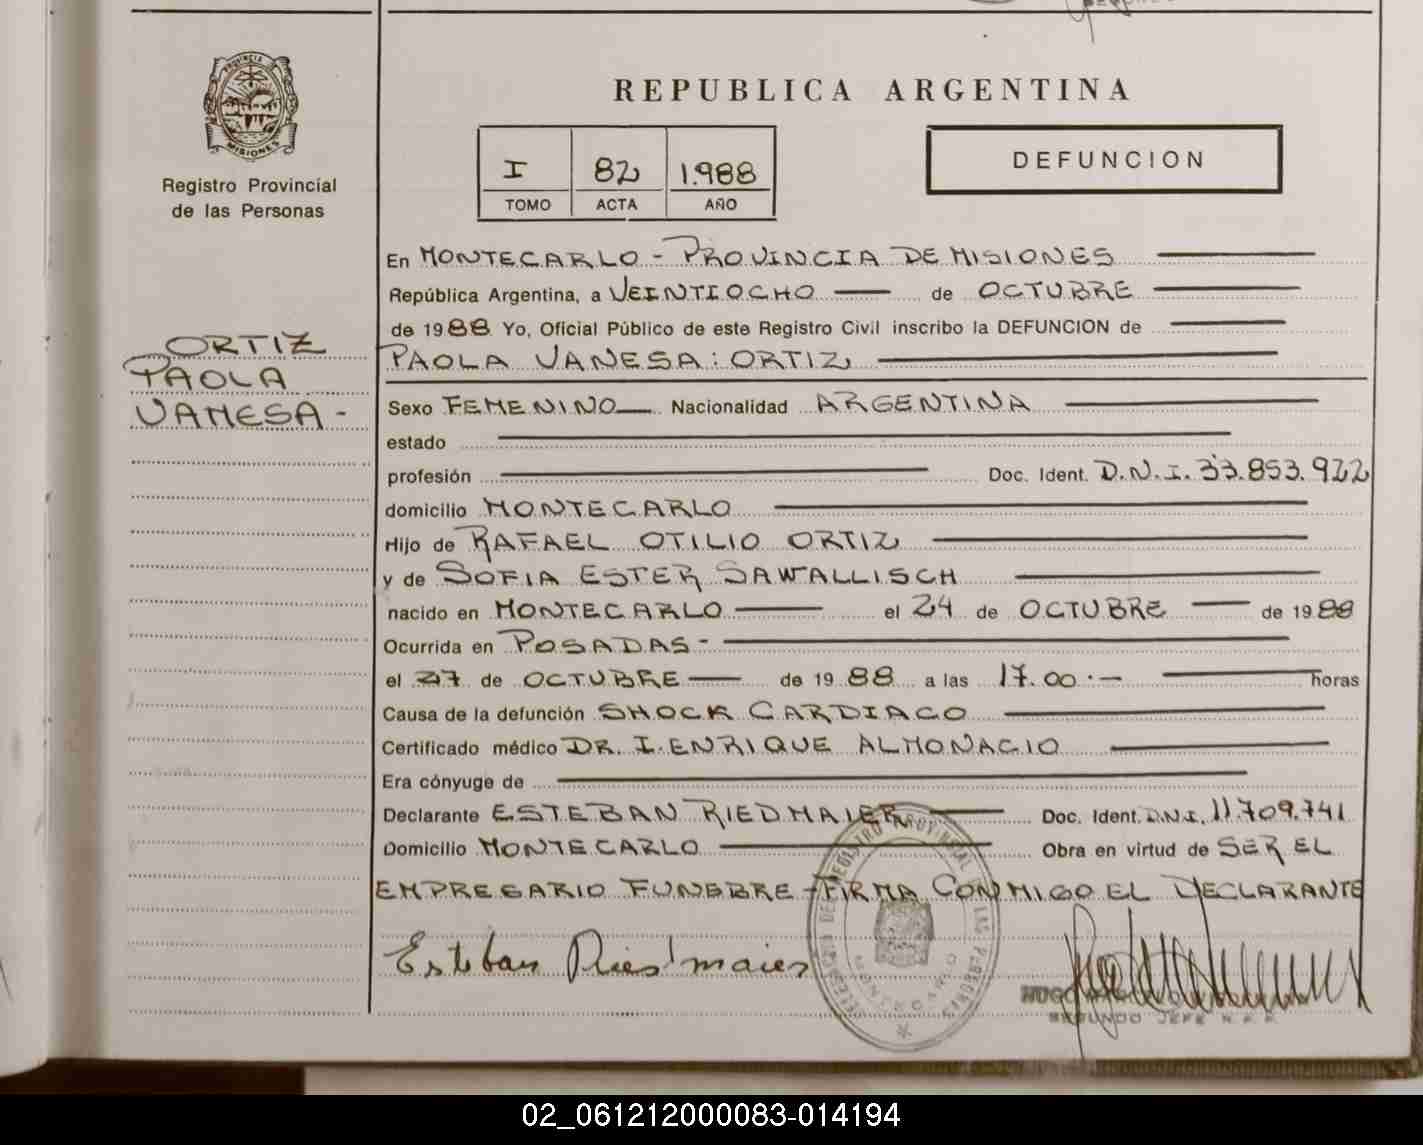 PROVINCIA
MISIONES
Registro Provincial
de las Personas
REPUBLICA ARGENTINA
I 82 1.988
TOMO ACTA AÑO
DEFUNCION
En MONTECARLO - PROVINCIA DE MISIONES
República Argentina, a VEINTIOCHO de OCTUBRE
de 1988 Yo, Oficial Público de este Registro Civil inscribo la DEFUNCION de
PAOLA VANESA: ORTIZ
ORTIZ
PAOLA
VANESA -
Sexo FEMENINO Nacionalidad ARGENTINA
estado
profesión Doc. Ident. D.N.I. 33.853.922
domicilio MONTECARLO
Hijo de RAFAEL OTILIO ORTIZ
y de SOFIA ESTER SAWALLISCH
nacido en MONTECARLO el 24 de OCTUBRE de 1988
Ocurrida en POSADAS -
el 27 de OCTUBRE de 1988 a las 17.00.- horas
Causa de la defunción SHOCK CARDIACO
Certificado médico DR. I. ENRIQUE ALMONACIO
Era cónyuge de
Declarante ESTEBAN RIEDMAIER Doc. Ident. D.N.I. 11.709.741
Domicilio MONTECARLO Obra en virtud de SER EL
EMPRESARIO FUNEBRE - FIRMA CONMIGO EL DECLARANTE
Esteban Riedmaier
DELEGACION DEL REGISTRO PROVINCIAL DE LAS PERSONAS
MONTECARLO
HUGO
SEGUNDO JEFE
02_061212000083-014194